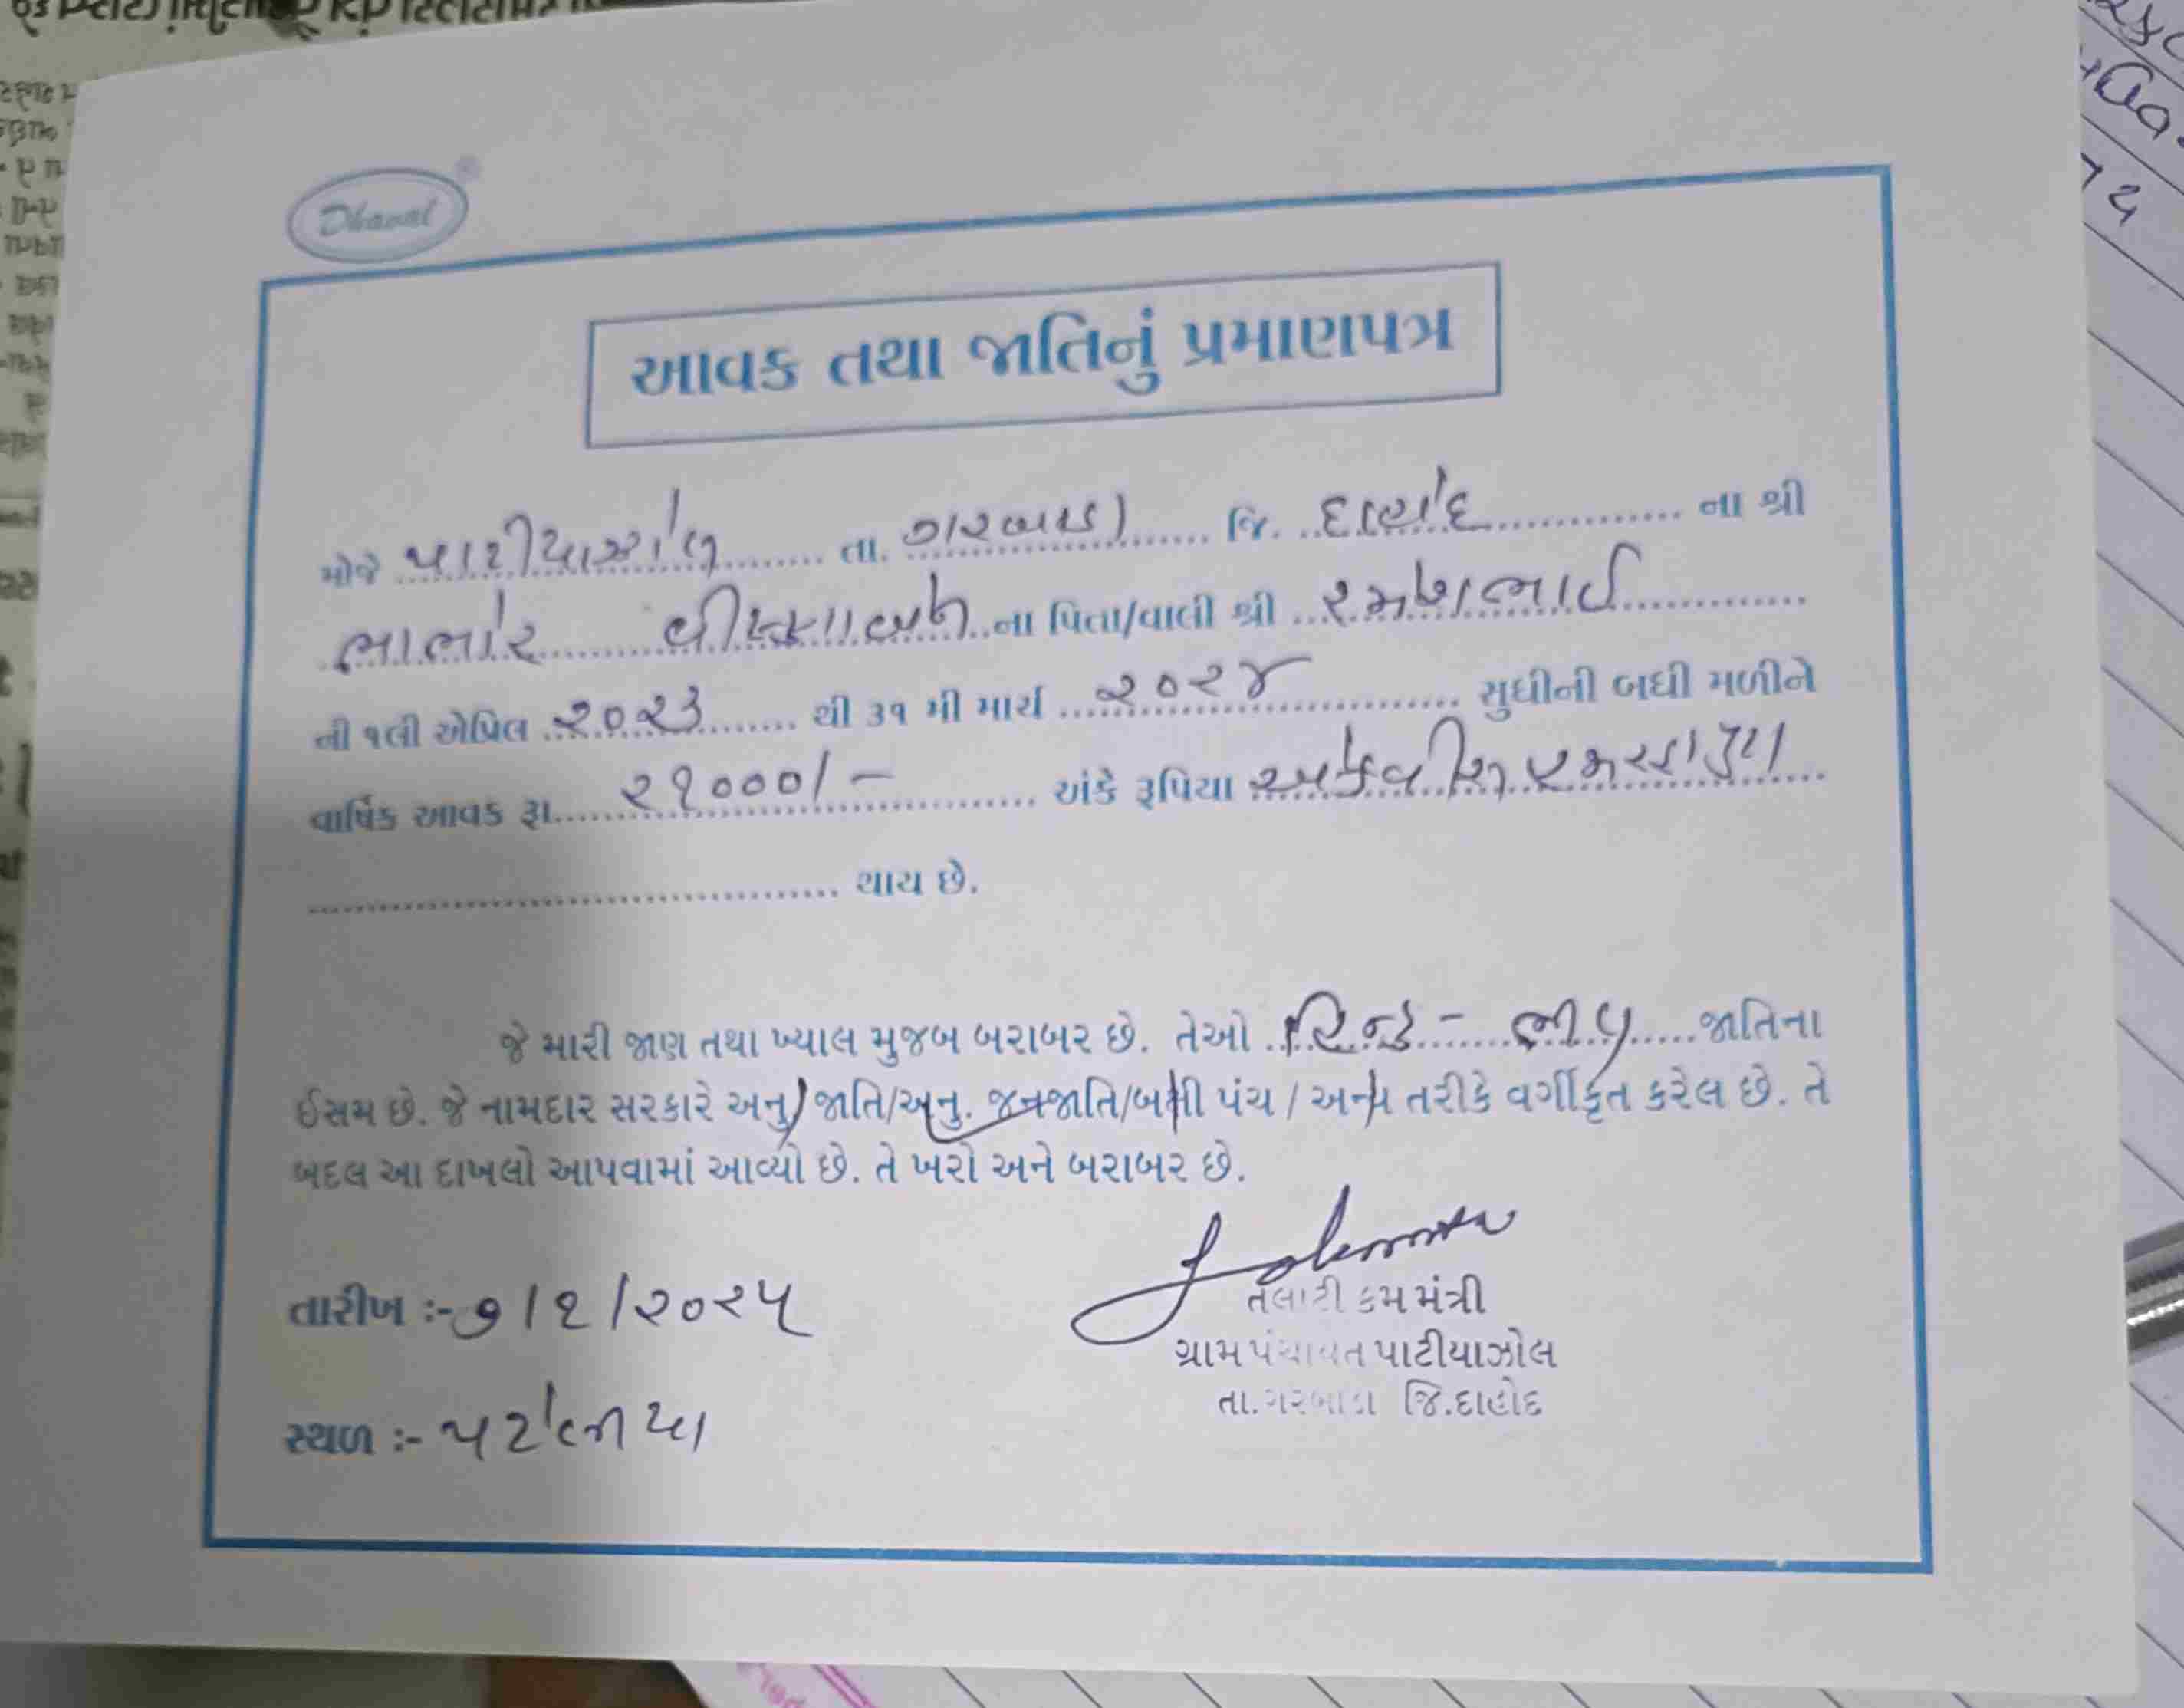 Dhaval
આવક તથા જાતિનું પ્રમાણપત્ર
મોજે પાટીયાઝોલ તા. ગરબાડા જિ. દાહોદ ના શ્રી
ભાભોર ના પિતા/વાલી શ્રી રમણભાઈ
ની ૧લી એપ્રિલ ૨૦૨૩ થી ૩૧ મી માર્ચ ૨૦૨૪ સુધીની બધી મળીને
વાર્ષિક આવક રૂા. ૨૧૦૦૦/- અંકે રૂપિયા
થાય છે.
જે મારી જાણ તથા ખ્યાલ મુજબ બરાબર છે. તેઓ હિન્દુ - ભીલ જાતિના
ઈસમ છે. જે નામદાર સરકારે અનુ. જાતિ/અનુ. જનજાતિ/બક્ષી પંચ / અન્ય તરીકે વર્ગીકૃત કરેલ છે. તે
બદલ આ દાખલો આપવામાં આવ્યો છે. તે ખરો અને બરાબર છે.
તારીખ :- ૭/૨/૨૦૨૫
તલાટી કમ મંત્રી
ગ્રામ પંચાયત પાટીયાઝોલ
તા. ગરબાડા જિ.દાહોદ
સ્થળ :-